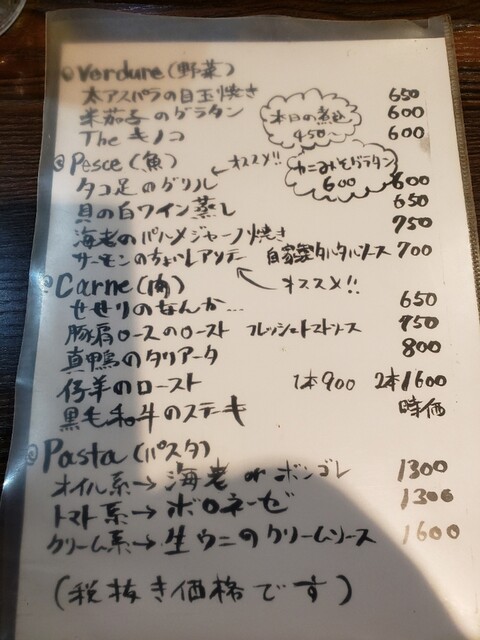 ◎Verdure(野菜)
太アスパラの目玉焼き 650
米茄子のグラタン 600
The キノコ 600
本日の煮込 450〜
◎Pesce(魚)
オススメ!!
カニみそグラタン 600
タコ足のグリル 600
貝の白ワイン蒸し 650
海老のパルメジャーノ焼き 750
サーモンのちょいレアソテー 自家製タルタルソース 700
オススメ!!
◎Carne(肉)
せせりのなんか… 650
豚肩ロースのロースト フレッシュトマトソース 750
真鴨のタリアータ 800
仔羊のロースト 1本900 2本1600
黒毛和牛のステキ 時価
◎Pasta(パスタ)
オイル系→海老 or ボンゴレ 1300
トマト系→ボロネーゼ 1300
クリーム系→生ウニのクリームソース 1600
(税抜き価格です)